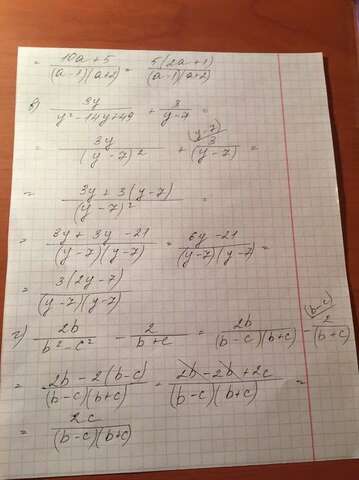 = (10a+5)/((a-1)(a+2)) = 5(2a+1)/((a-1)(a+2))
в) 3y/(y²-14y+49) + 3/(y-7) =
= 3y/(y-7)² + (y-7) 3/(y-7) =
= (3y+3(y-7))/(y-7)² =
= (3y+3y-21)/((y-7)(y-7)) = (6y-21)/((y-7)(y-7)) =
= 3(2y-7)/((y-7)(y-7))
г) 2b/(b²-c²) - 2/(b+c) = 2b/((b-c)(b+c)) - (b-c) 2/(b+c)
= (2b-2(b-c))/((b-c)(b+c)) = (2b-2b+2c)/((b-c)(b+c)) =
= 2c/((b-c)(b+c))